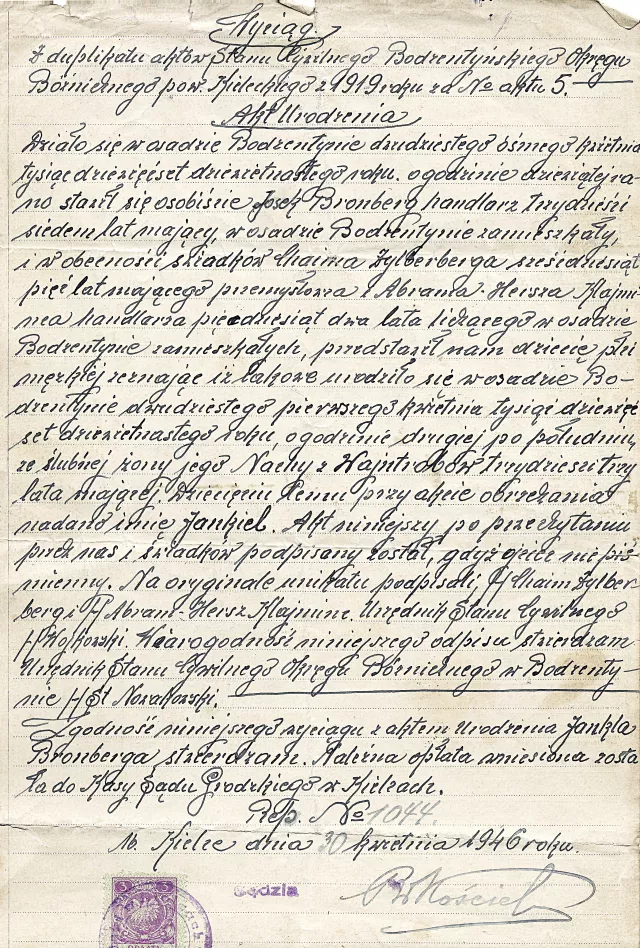 Wyciąg.
Z duplikatu aktów Stanu Cywilnego Bodzentyńskiego Okręgu
Bóżniczego pow. Kieleckiego z 1919 roku za No aktu 5.
Akt Urodzenia
Działo się w osadzie Bodzentynie dwudziestego ósmego kwietnia
tysiąc dziewięćset dziewietnastego roku. o godzinie dziewiątej ra-
no stawił się osobiście Josek Bronberg handlarz trzydzieści
siedem lat mający, w osadzie Bodzentynie zamieszkały,
i w obecności świadków Chaima Zylberberga sześćdziesiąt
pięć lat mającego przemysłowca i Abrama-Hersza Klajmi-
nca handlarza pięćdziesiąt dwa lata liczącego w osadzie
Bodzentynie zamieszkałych, przedstawił nam dziecię płci
męzkiej zeznając iż takowe urodziło się w osadzie Bo-
dzentynie dwudziestego pierwszego kwietnia tysiąc dziewięć
set dziewietnastego roku, o godzinie drugiej po południu,
ze ślubnej żony jego Nachy z Wajntrobów trzydzieści trzy
lata mającej Dziecięciu temu przy akcie obrzezania
nadano imię Jankiel. Akt niniejszy po przeczytaniu
przez nas i świadków podpisany został, gdyż ojciec niepiś-
mienny. Na oryginale unikatu podpisali; /-/ Chaim Zylber-
berg i /-/ Abram-Hersz Klajminc. Urzędnik Stanu Cywilnego
/-/ Wojkowski. Wiarogodność niniejszego odpisu stwierdzam
Urzędnik Stanu Cywilnego Okręgu Bóżniczego w Bodzenty-
nie /-/ St Nowakowski.
Zgodność niniejszego wyciągu z aktem Urodzenia Jankla
Bronberga stwierdzam. Należna opłata wniesiona zosta
ła do Kasy Sądu Grodzkiego w Kielcach.
Rep. No 1044.
M. Kielce dnia 30 kwietnia 1946 roku.
Sędzia
3 3
OPŁATA